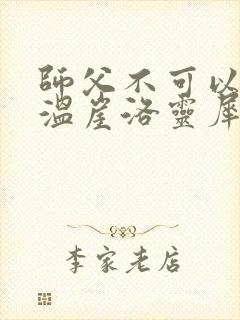 師父不可以
溫崖洛靈犀
李家老店